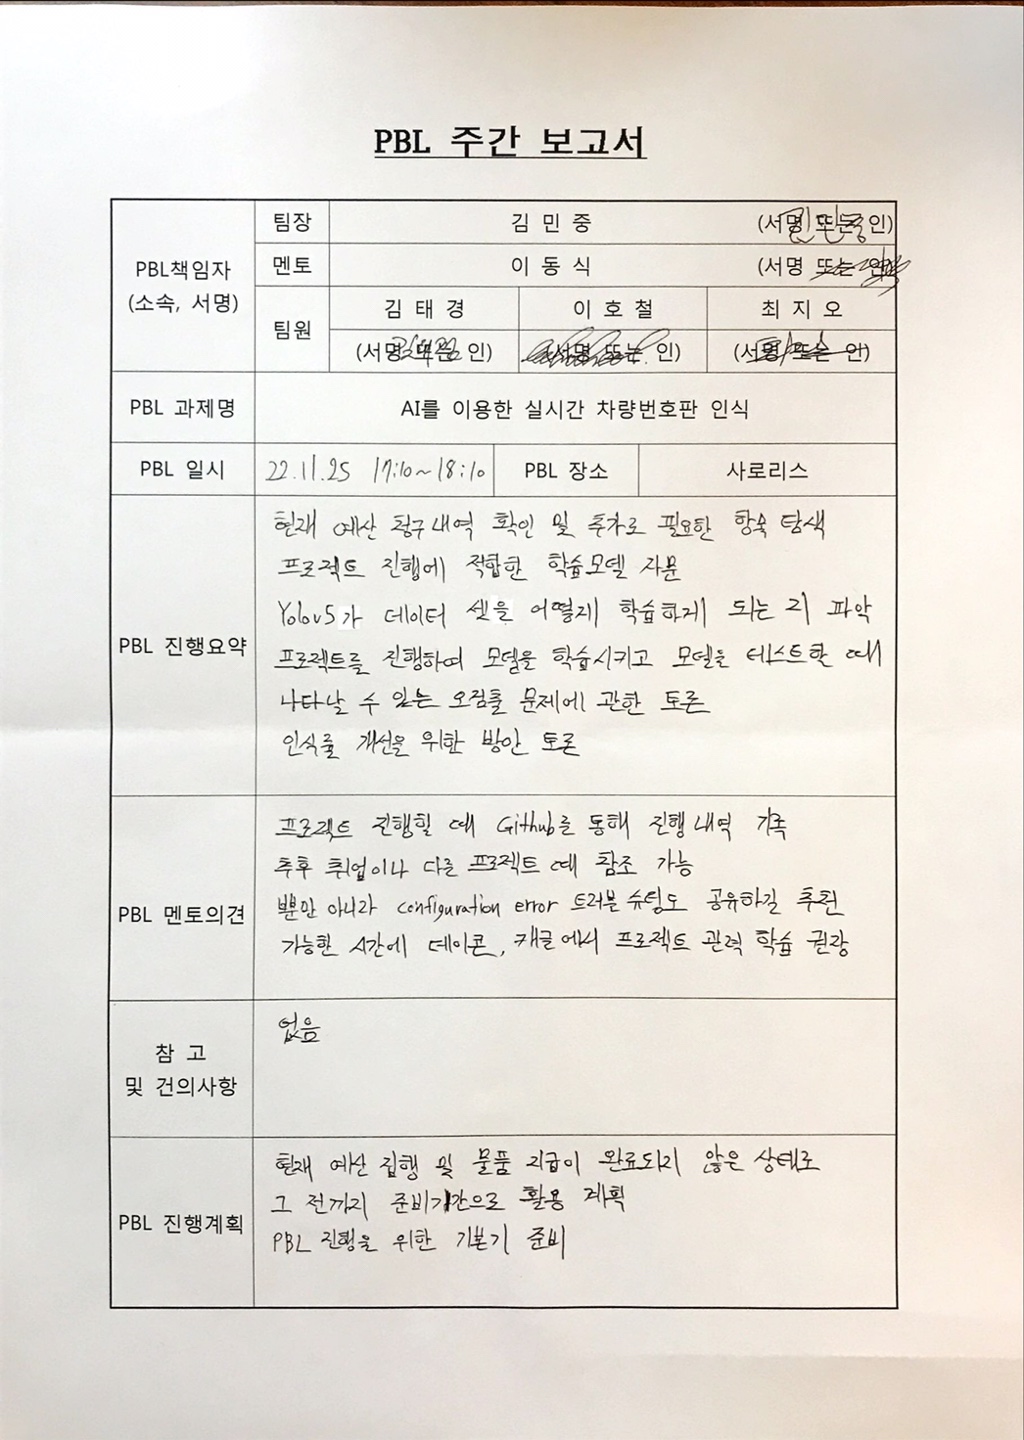 PBL 주간 보고서
PBL책임자
(소속, 서명)
팀장
김 민 중
(서명 또는 인)
멘토
이 동 식
(서명 또는 인)
팀원
김 태 경
이 호 철
최 지 오
(서명 또는 인)
(서명 또는 인)
(서명 또는 인)
PBL 과제명
AI를 이용한 실시간 차량번호판 인식
PBL 일시
22.11.25 17:10~18:10
PBL 장소
사로리스
PBL 진행요약
현재 예산 청구내역 확인 및 추가로 필요한 항목 탐색
프로젝트 진행에 적합한 학습모델 자문
Yolov5가 데이터 셋을 어떻게 학습하게 되는 지 파악
프로젝트를 진행하며 모델을 학습시키고 모델을 테스트할 때
나타날 수 있는 오검출 문제에 관한 토론
인식률 개선을 위한 방안 토론
PBL 멘토의견
프로젝트 진행할 때 Github를 통해 진행내역 기록
추후 취업이나 다른 프로젝트 때 참조 가능
뿐만 아니라 configuration error 트러블 슈팅도 공유하길 추천
가능한 시간에 데이콘, 캐글에서 프로젝트 관련 학습 권장
참 고
및 건의사항
없음
PBL 진행계획
현재 예산 집행 및 물품 지급이 완료되지 않은 상태로
그 전까지 준비기간으로 활용 계획
PBL 진행을 위한 기본기 준비